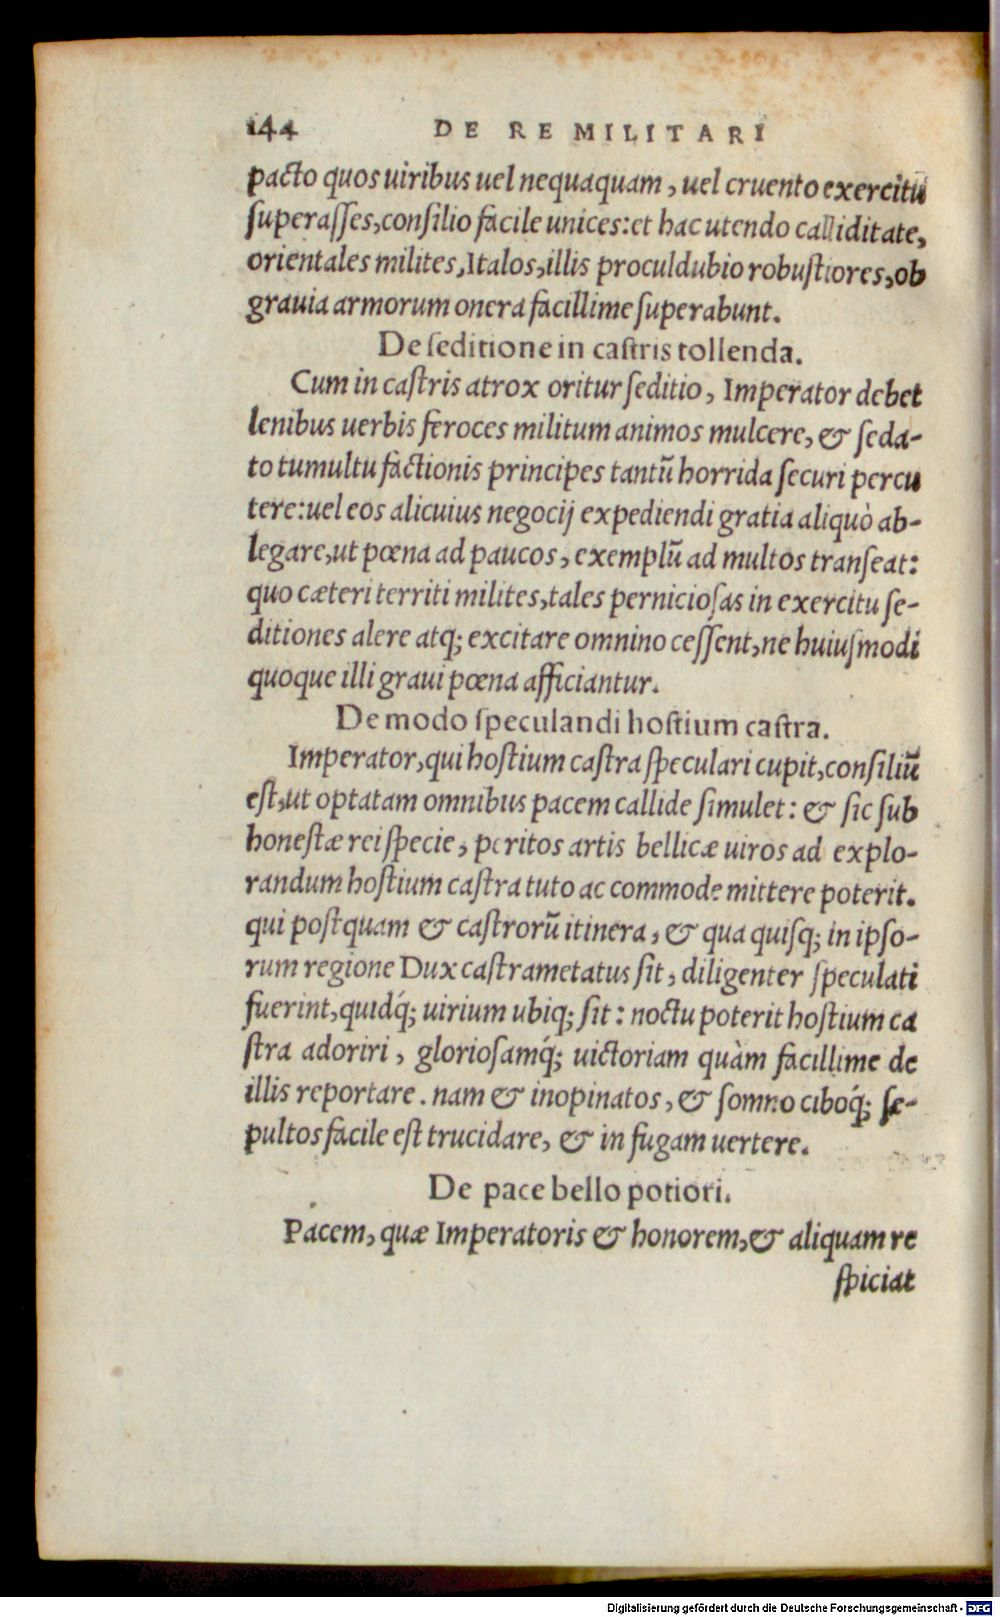 144 DE RE MILITARI
pacto quos uiribus uel nequaquam, uel cruento exercitū
superasses, consilio facile unices: et hac utendo calliditate,
orientales milites, Italos, illis proculdubio robustiores, ob
grauia armorum onera facillime superabunt.
De seditione in castris tollenda.
Cum in castris atrox oritur seditio, Imperator debet
lenibus uerbis feroces militum animos mulcere, & seda-
to tumultu factionis principes tantū horrida securi percu
tere: uel eos alicuius negocij expediendi gratia aliquò ab-
legare, ut pœna ad paucos, exemplū ad multos transeat:
quo cæteri territi milites, tales perniciosas in exercitu se-
ditiones alere atq; excitare omnino cessent, ne huiusmodi
quoque illi graui pœna afficiantur.
De modo speculandi hostium castra.
Imperator, qui hostium castra speculari cupit, consiliū
est, ut optatam omnibus pacem callide simulet: & sic sub
honestæ rei specie, peritos artis bellicæ uiros ad explo-
randum hostium castra tuto ac commode mittere poterit.
qui postquam & castrorū itinera, & qua quisq; in ipso-
rum regione Dux castrametatus sit, diligenter speculati
fuerint, quidq́; uirium ubiq; sit: noctu poterit hostium ca
stra adoriri, gloriosamq́; uictoriam quàm facillime de
illis reportare. nam & inopinatos, & somno ciboq́; se-
pultos facile est trucidare, & in fugam uertere.
De pace bello potiori.
Pacem, quæ Imperatoris & honorem, & aliquam re
spiciat
Digitalisierung gefördert durch die Deutsche Forschungsgemeinschaft - DFG